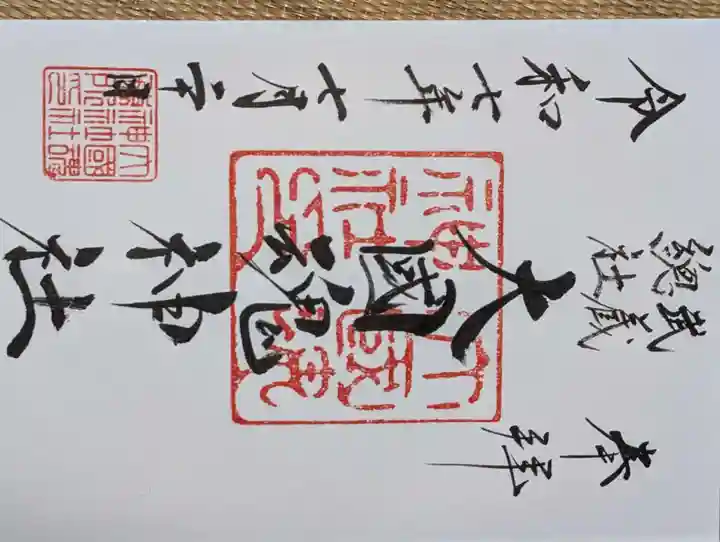 奉拝
武蔵
總社
大國魂神社
令和七年七月二十日